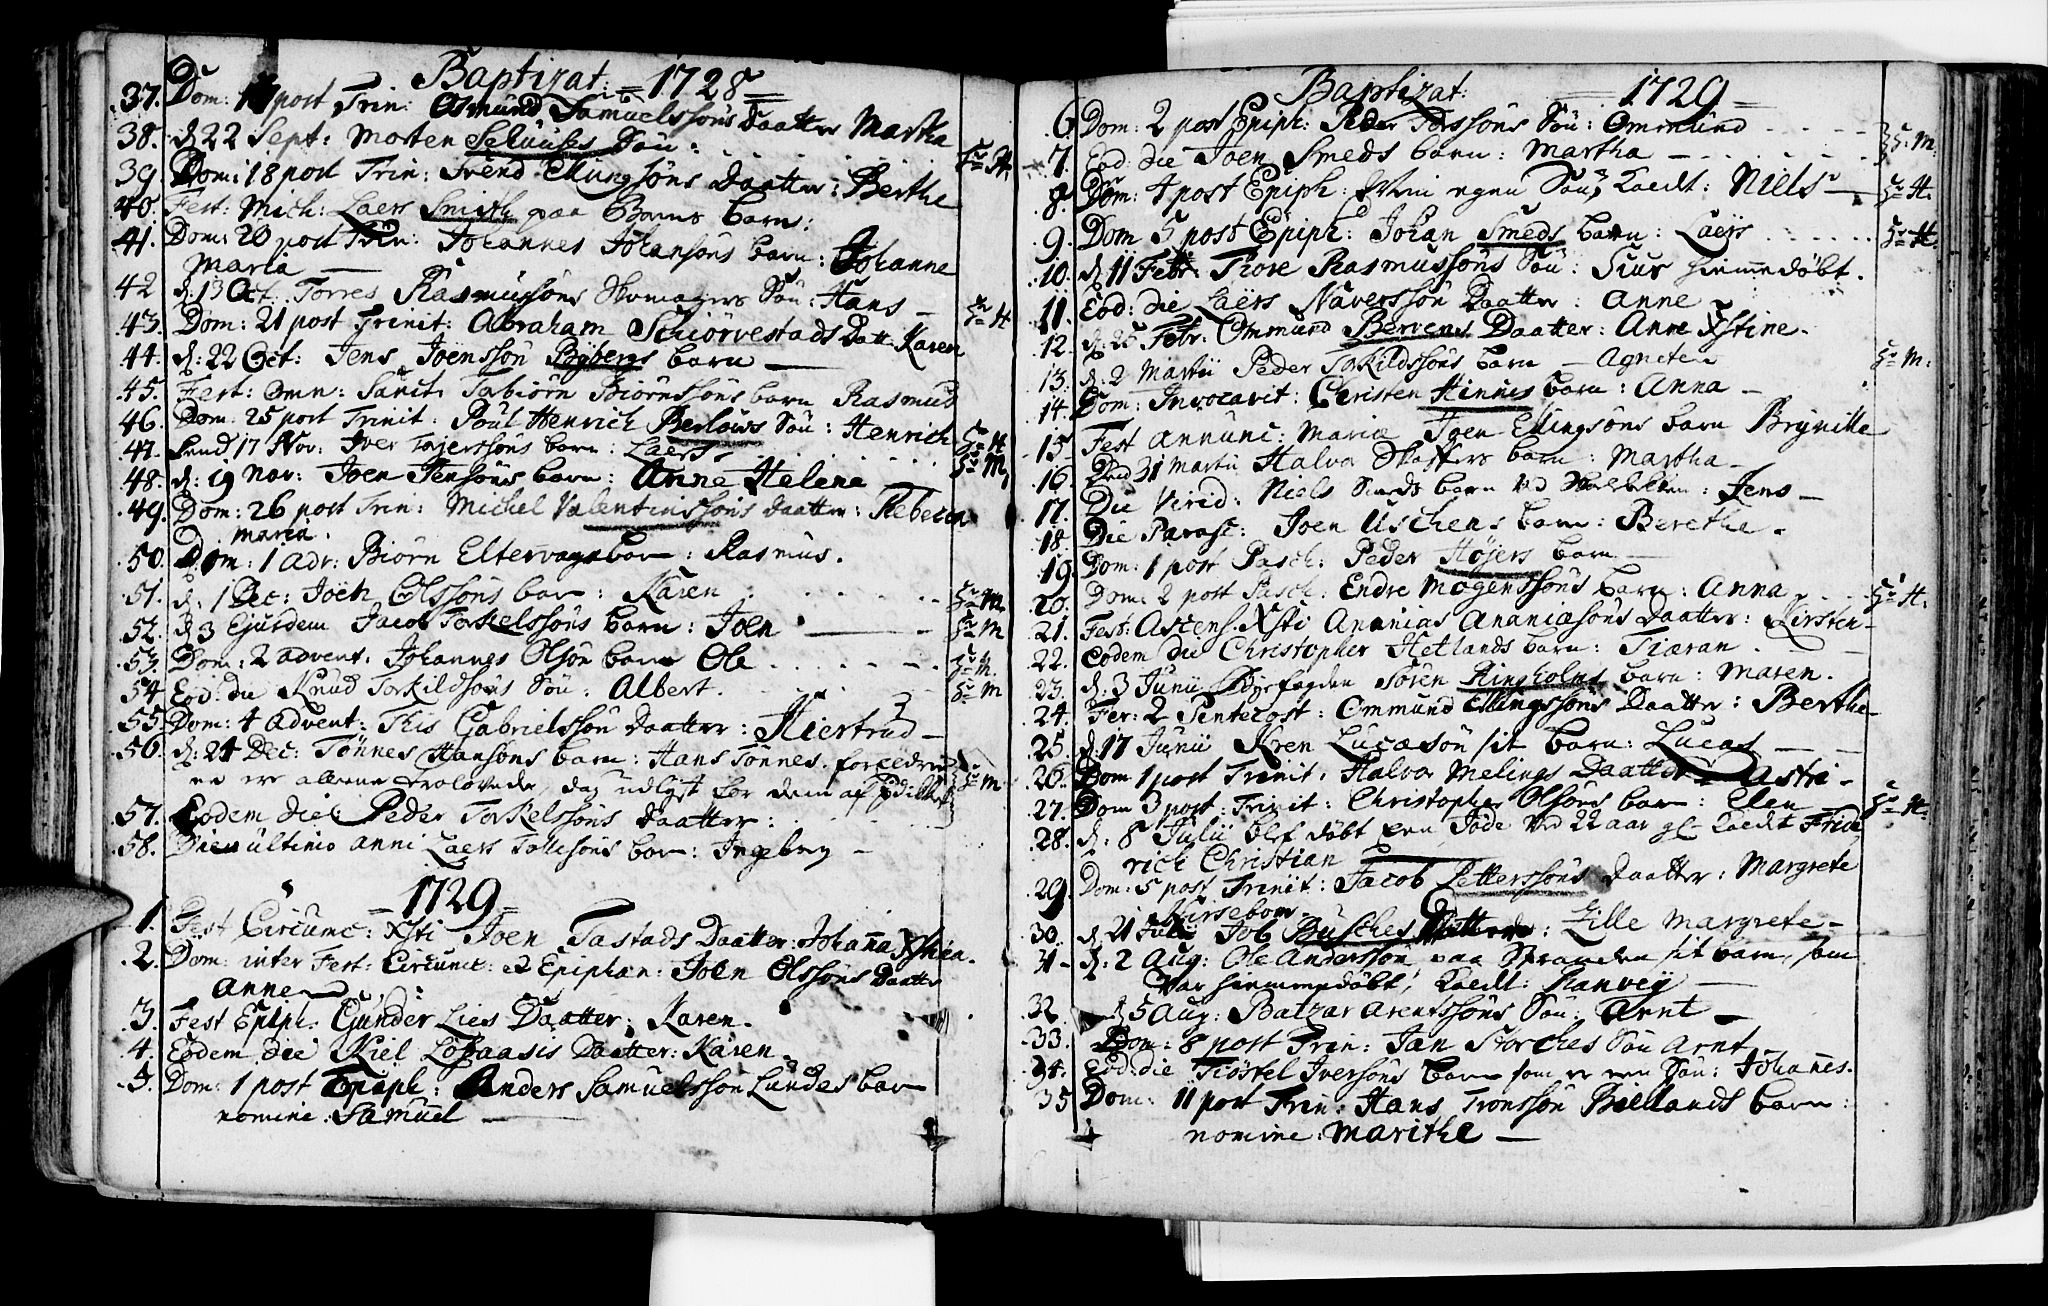 Baptizat: = 1728 =
37. Dom: 17 post Trin: Osmund Samuelssöns Daatter Martha
38. d 22 Sept: Morten Söu:
39. Dom: 18 post Trin: Svend Ellingsöns Daatter: Berthe
40. Fest: Mich: Laers Smith paa barn:
41. Dom: 20 post Trin: Johannes Johansöns barn: Johanne
Maria —
42 d: 13 Oct. Torres Rasmussöns Skomagers Söu: Hans —
43. Dom: 21 post Trinit: Abraham Schiörvestads Datt: Karen
44. d: 22 Oct: Jens Joenssön Bÿbergs barn —
45. Fest: Omn: Sanct: Torbiörn Biörnsöns barn Rasmus
46. Dom: 25 post Trinit: Poul Henrich Berlows Söu: Henrich
47. 17 Nov: Iver barn: Laers.
48. d: 19 Nov: Joen Jensöns barn: Anne Helena
49. Dom: 26 post Trin: Michel Valentinssöns Daatter: Rebecca
Maria.
50. Dom: 1 Adv: Biörn barn: Rasmus.
51. d: 1 Dec: Joen Olssöns bar: Karen
52. d 3 Ejusdem Jacob Torkelssöns barn: Joen
53. Dom: 2 Advent: Johannes Olsön barn Ole
54 Eod: die Knud Torkildsöns Söu: Albert.
55. Dom: 4 Advent: This Gabrielssön Daatter: Kiertrud —
56. d: 24 Dec: Tönnes Hansöns barn: Hans Tönnes. forældrene
er allene trolovede, dag udlyst for dem af
57. Eodem die: Peder Torkelssöns Daatter:
58. Die ultimo anni Laers Tollisöns bar: Ingebrg —
= 1729 =
1. Fest Circumc: Xsti Joen Tastads Daatter: Johanna Xstina.
2. Dom: inter Fest: Circumc: & Epiphan: Joen Olssöns Daatter
Anne
3. Fest Epiph: Gunder Lies Daatter: Karen.
4. Eodem die Kiel Daatter: Karen
5. Dom: 1 post Epiph: Anders Samuelssön Lundes bar
nomine: Samuel —
Baptizat: = 1729 =
6 Dom: 2 post Epiph: Peder Söu: Ommund
7. Eod: die Joen Smeds barn: Martha
8. Dom: 4 post Epiph: Min egen Söu, kaldt: Niels
9. Dom 5 post Epiph: Johan Smeds barn: Laers
10. d 11 Febr: Tore Rasmussöns Söu: Siur hiemmedöbt.
11. Eod: die Laers Naverssön Daatter: Anne
12. d: 25 Febr: Ommund Bervens Daatter: Anne Xstine.
13. d: 2 Martii Peder Torkildssöns barn — Agnete
14. Dom: Invocavit: Christen Hinnes barn: Anna —
15 Fest Annunc: Mariæ Joen Ellingsöns barn Brynille
16. 31 Martii Halvor barn: Martha —
17. Die Virid: Niels Smeds barn ved: Jens —
18 Die Parasc: Joen Uschens barn: Berethe.
19. Dom: 1 post Pasch: Peder Höjers barn —
20. Dom: 2 post Pasch: Endre Mogenssöns barn: Anna
21. Fest: Ascens. Xsti Ananias Ananiasöns Daatter: Kirsten
22. Eodem die Christopher Hetlands barn: Tiæran
23. d: 3 Junii Byefogden Sören Ringholms barn: Maren.
24. Fer: 2 Pentecost: Ommund Ellingssöns Daatter: Berthe
25 d: 17 Junii Lucasön sit barn: Lucas
26. Dom 1 post Trinit: Halvor Melings Daatter Astri —
27. Dom 3 post: Trinit: Christopher Olsöns bar: Elen
28. d: 8 Julii blef döbt een Jöde ved 22 aar gl kaldt Fride
rich Christian
29 Dom: 5 post Trinit: Jacob Petterssöns Daatter: Margrete
30. d 21 Julii Job Busches: Zille Margrete —
31 d: 2 Aug: Ole Anderssön paa Stranden sit barn, som
var hiemmedöbt, kaldt: Ranvey
32 d 5 Aug: Baltzar Arentssöns Söu: Arnt —
33. Dom: 8 post Trin: Jan Storches Söu Arnt
34. Eod: die Tiöstel Iversöns barn som er een Söu: Johannes.
35 Dom: 11 post Trin: Hans Tronssön Biellands barn:
nomine: Marithe —